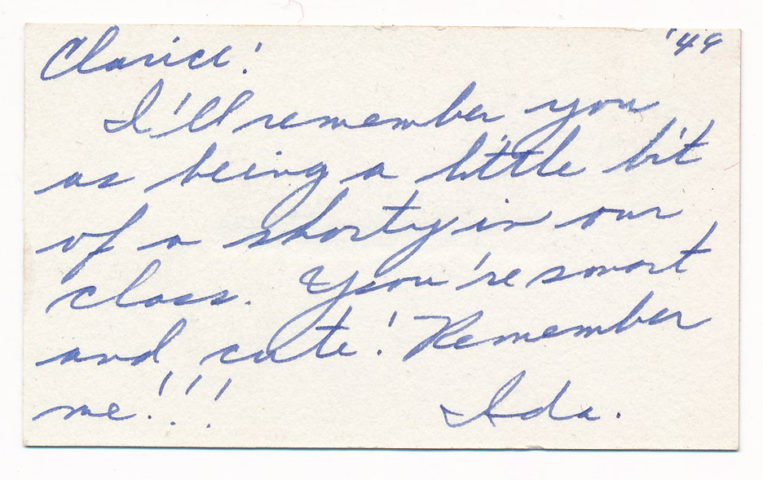 '49
Clarice!
I'll remember you
as being a little bit
of a shorty in our
class. You're smart
and cute! Remember
me!!!
Ada.